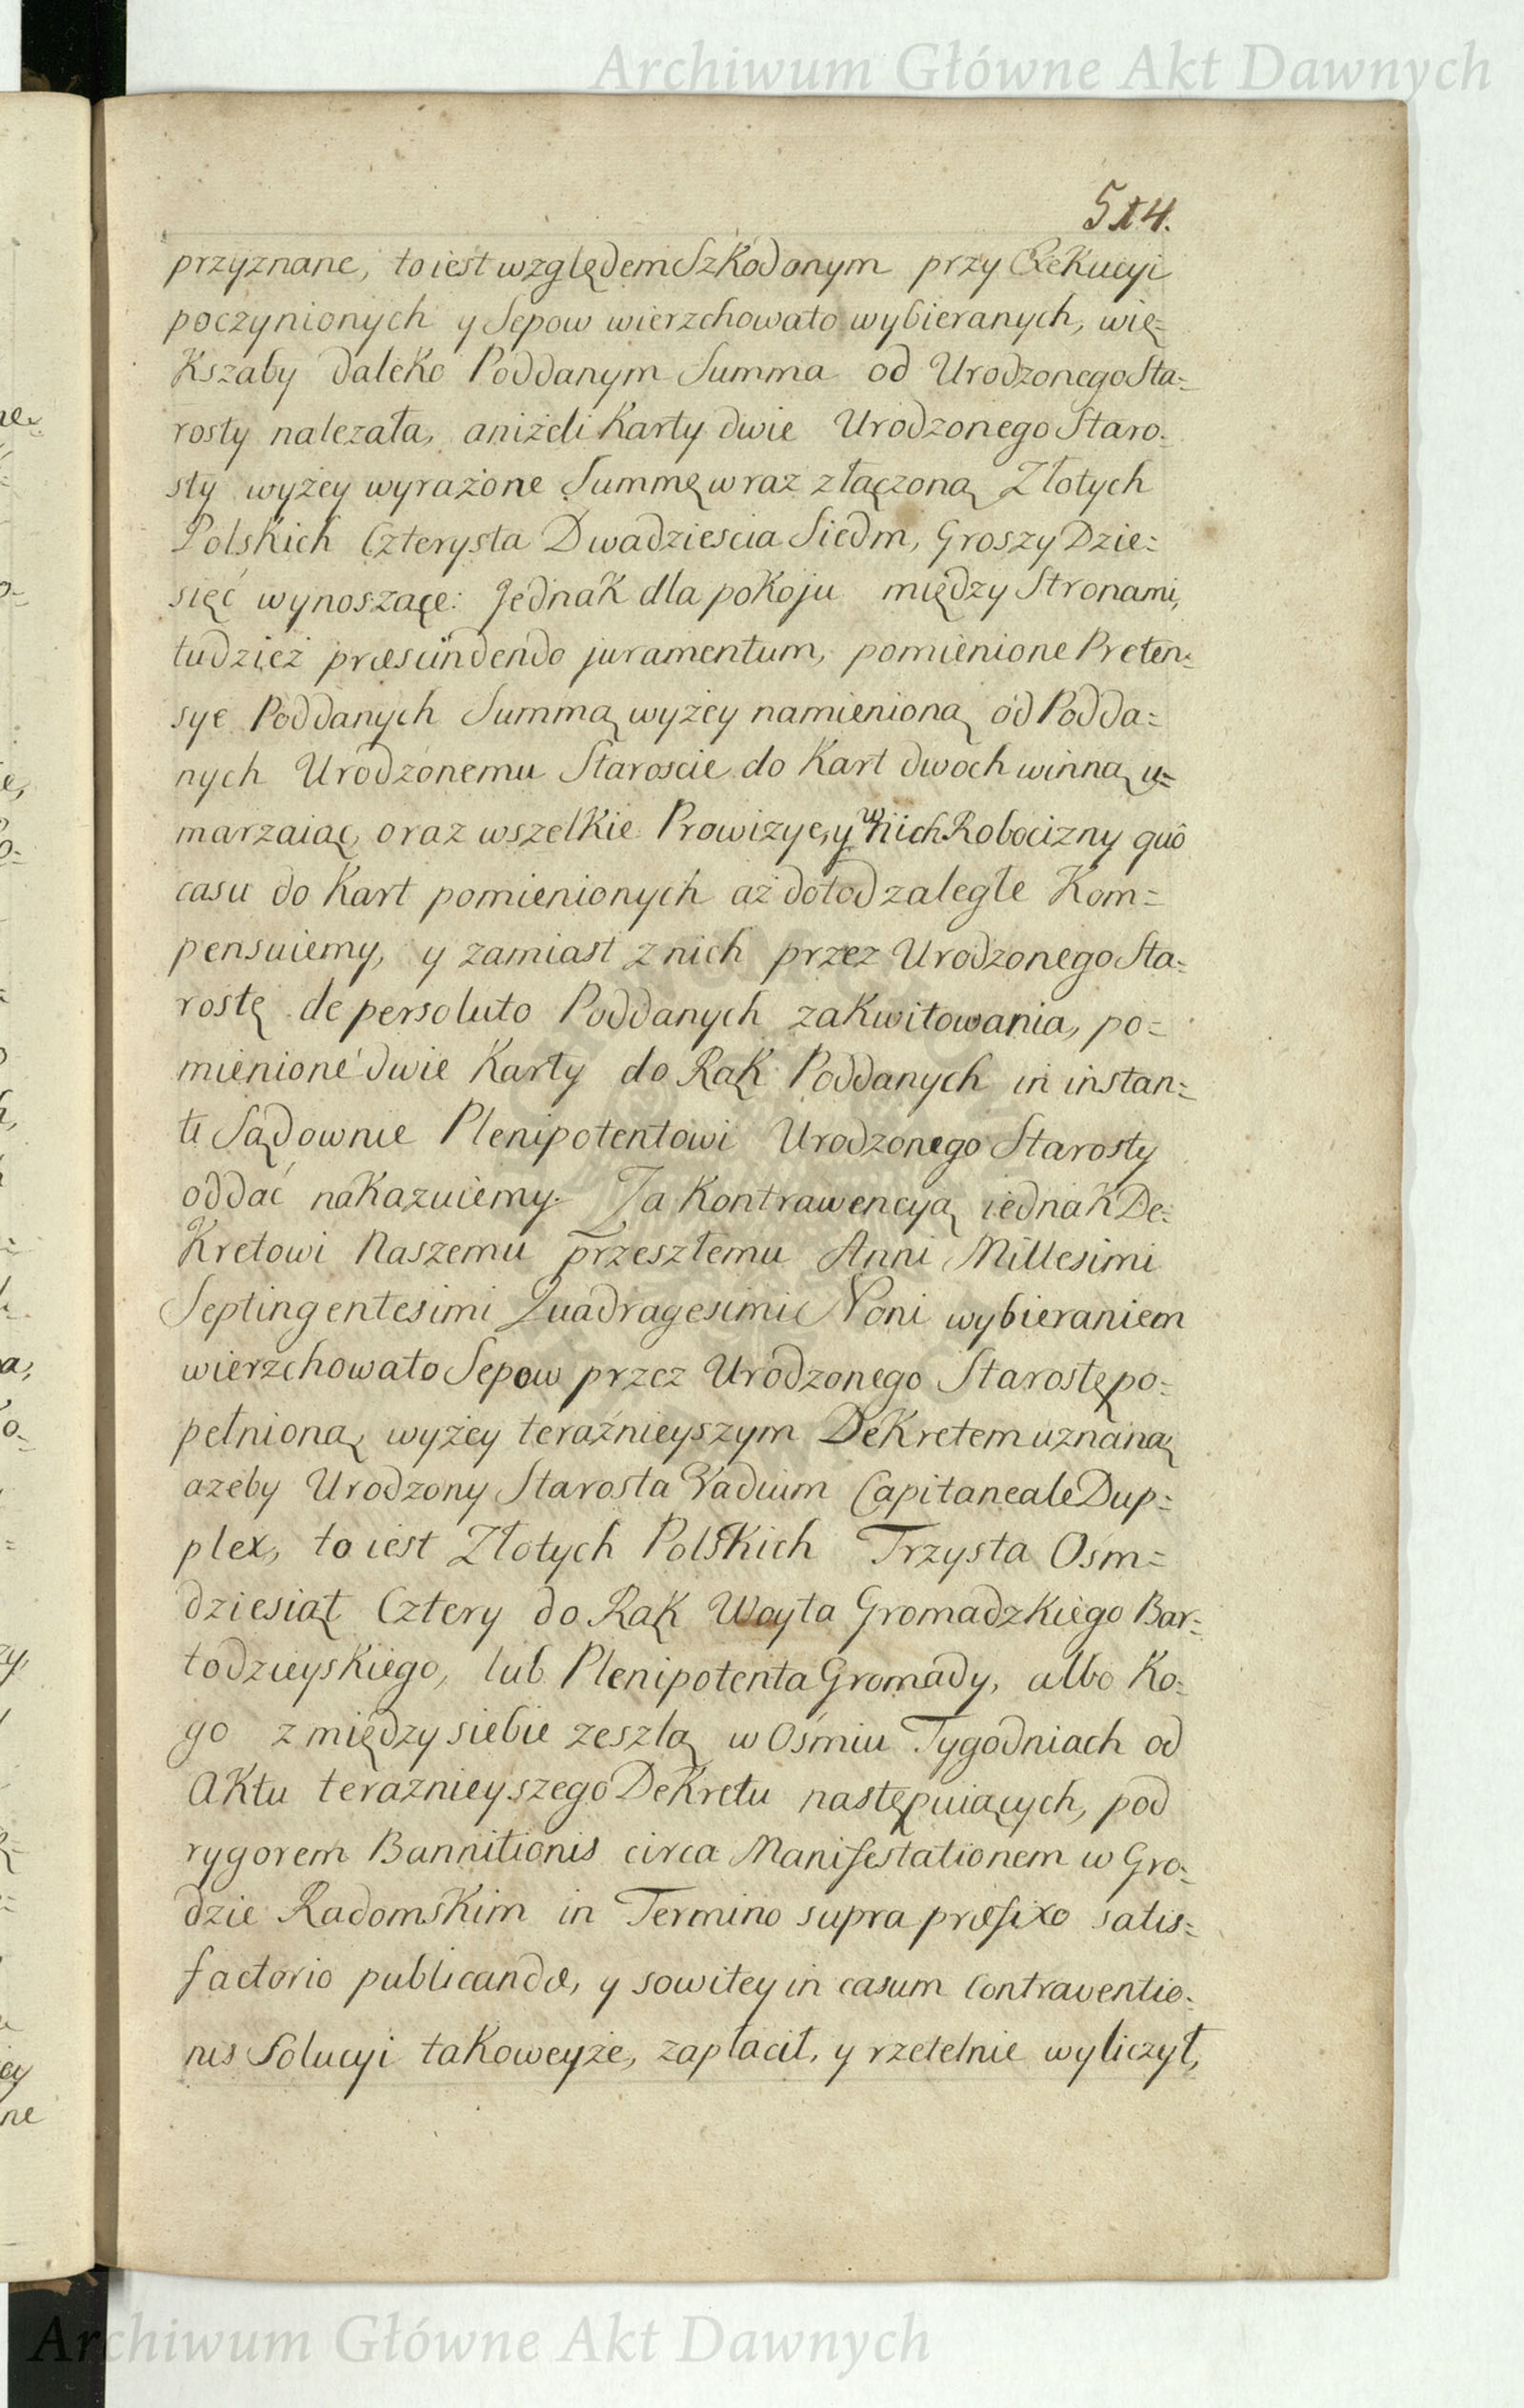 Archiwum Główne Akt Dawnych
514.
przyznane, to iest względem Szkod onym przy Exekucyi
poczynionych y Sepow wierzchowato wybieranych, wię=
kszaby daleko Poddanym Summa od Urodzonego Sta=
rosty nalezała, aniżeli Karty dwie Urodzonego Staro=
sty wyżey wyrażone Summę wraz złączoną Złotych
Polskich Czterysta Dwadziescia Siedm, Groszy Dzie=
sięć wynoszące: Jednak dla pokoju między Stronami,
tudzież præscindendo juramentum, pomienione Preten=
sye Poddanych Summą wyżey namienioną od Podda=
nych Urodzonemu Staroscie do Kart dwoch winną u=
marzaiąc, oraz wszelkie Prowizye, y w nich Robocizny quô
casu do Kart pomienionych aż dotod zaległe Kom=
pensuiemy, y zamiast z nich przez Urodzonego Sta=
rostę de persoluto Poddanych zakwitowania, po=
mienione dwie Karty do Rąk Poddanych in instan=
ti Sądownie Plenipotentowi Urodzonego Starosty
oddać nakazuiemy. Za Kontrawencyą iednak De=
kretowi Naszemu przeszłemu Anni Millesimi
Septingentesimi Quadragesimi Noni wybieraniem
wierzchowato Sepow przez Urodzonego Starostę po=
pełnioną wyżey teraźnieyszym Dekretem uznaną
azeby Urodzony Starosta Vadium Capitaneale Dup=
plex, to iest Złotych Polskich Trzysta Osm=
dziesiąt Cztery do Rąk Woyta Gromadzkiego Bar=
todzieyskiego, lub Plenipotenta Gromady, albo Ko=
go z między siebie zeszlą w Ośmiu Tygodniach od
Aktu teraznieyszego Dekretu następuiących, pod
rygorem Bannitionis circa Manifestationem w Gro=
dzie Radomskim in Termino supra præfixo satis=
factorio publicandæ, y sowitey in casum Contraventio=
nis Solucyi takoweyże, zapłacił, y rzetelnie wyliczył,
Archiwum Główne Akt Dawnych